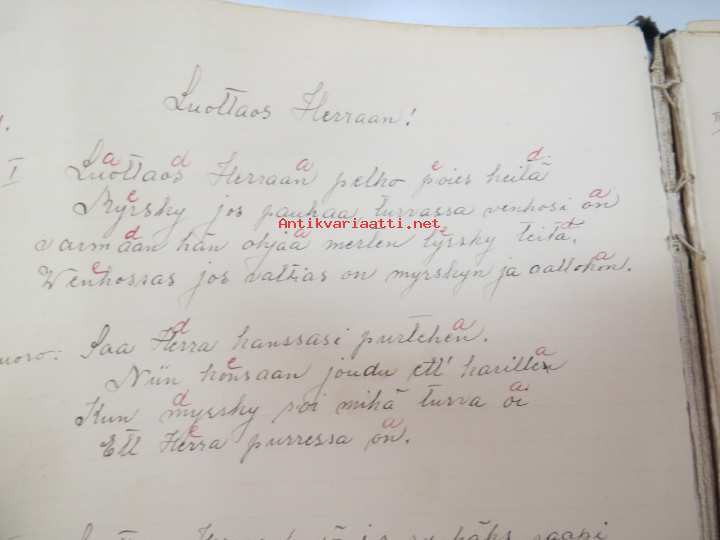 Luottaos Herraan!
I Luottaos Herraan pelko poies heitä
Myrsky jos pauhaa turvassa venhosi on
Antikvariaatti.net
varmaan hän ohjaa merten tyrsky teitä.
Wenhossas jos valtias on myrskyn ja aallokon.
uoro: Saa Herra kanssasi purtehen.
Niin konsaan joudu ett' karille
Kun myrsky soi mikä turva oi
Ett Herra purressa on.